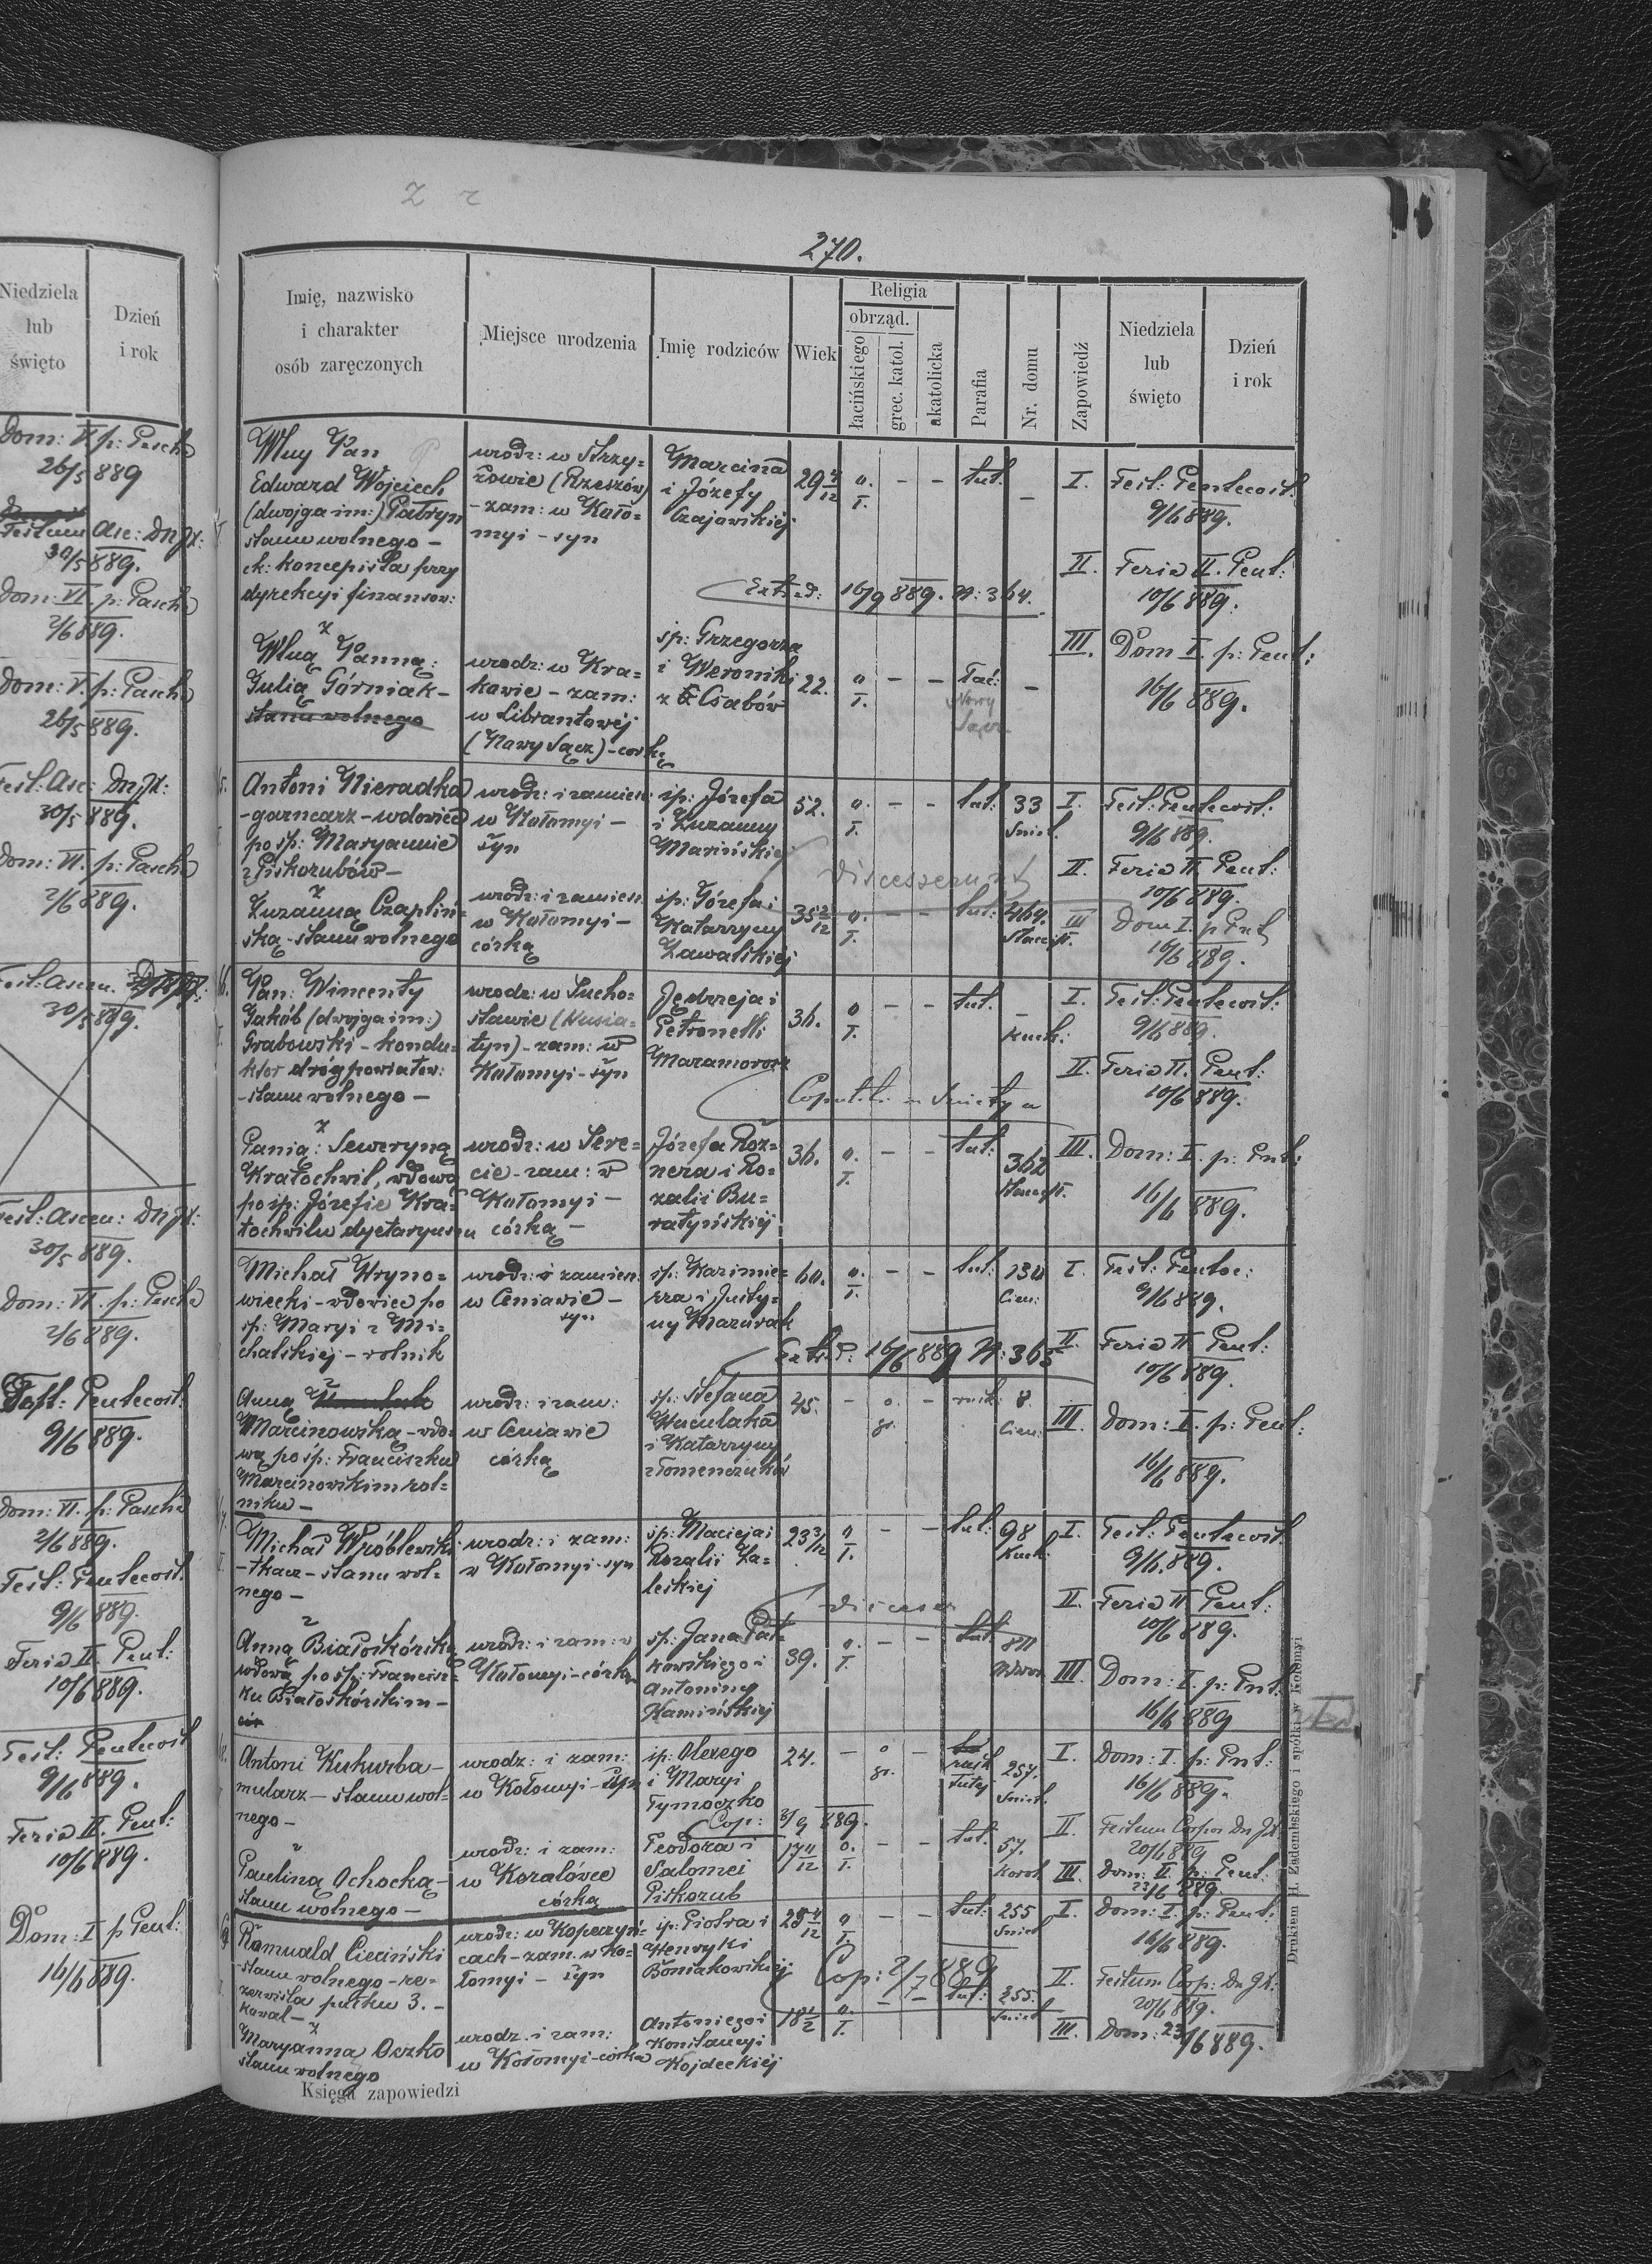 270.
Niedziela
lub
święto
Dzień
i rok
Dom: V. p: Pascha
26/5 889
Festum Asc: Dn JX:
30/5 889.
Dom: VI. p: Pascha
2/6 889.
Dom: V. p: Pascha
26/5 889.
Fest: Asc: Dn JX:
30/5 889.
Dom: VI. p: Pascha
2/6 889.
30/5 889.
Fest: Ascen: Dn JX:
30/5 889.
Dom: VI. p: Pascha
2/6 889.
Fest: Pentecost:
9/6 889.
Dom: VI. p: Pascha
2/6 889.
Fest: Pentecost:
9/6 889.
Feria II. Pent:
10/6 889.
Fest: Pentecost
9/6 889.
Feria II. Pent:
10/6 889.
Dom: I p Pent:
16/6 889.
Imię, nazwisko
i charakter
osób zaręczonych
Miejsce urodzenia
Imię rodziców
Wiek
Religia
obrząd.
łacińskiego
grec. katol.
akatolicka
Parafia
Nr. domu
Zapowiedź
Niedziela
lub
święto
Dzień
i rok
Wny Pan
Edward Wojciech
(dwojga im:) Patryn
stanu wolnego –
ck: koncepista przy
dyrekcyi finansow:
urodz: w Strzy=
żowie (Rzeszów)
- zam: w Koło=
myi – syn
Marcina
i Józefy
Czajowskiej
29 4/12
o. ł. – – tut. –
I. Fest: Pentecost:
9/6 889.
II. Feria II. Pent:
10/6 889.
Extrad: 16/9 889. N: 364.
z
Wną Panną:
Julią Górniak –
stanu wolnego
urodz: w Kra=
kowie – zam:
w Librantowej
(Nowy Sącz) – córką
śp: Grzegorza
i Weroniki
z Csabów
22. o ł. – – Łać: –
Nowy
Sącz
III. Dom I. p: Pent:
16/6 889.
Antoni Nieradka
- garncarz – wdowiec
po śp: Maryannie
z Piskozubów –
urodz: i zamiesz:
w Kołomyi –
syn
śp: Józefa
i Zuzanny
Marińskiej
52. o. ł. – – tut: 33
Sniat.
I. Fest: Pentecost:
9/6 889.
II. Feria II. Pent:
10/6 889.
Discesserunt
z
Zuzanną Czapliń=
ską – stanu wolnego
urodz: i zamiesz:
w Kołomyi –
córką
śp: Józefa i
Katarzyny
Zawalskiej
35 2/12 o. ł. – – tut: 464.
III Dom I. p Pent
16/6 889.
Pan: Wincenty
Jakób (dwojga im:)
Grabowski – kondu=
ktor dróg powiatow:
- stanu wolnego –
urodz: w Sucho=
stawie (Husia=
tyn) – zam: w
Kołomyi – syn
Jędrzeja i
Petronelli
Maramorosz
36. o ł. – – tut. –
Kuck:
I. Fest: Pentecost:
9/6 889.
II. Feria II. Pent:
10/6 889.
Copulati in Sniatyn
z
Panią: Seweryną
Kratochwil, wdową
po śp: Józefie Kra=
tochwilu dyetaryuszu
urodz: w Sere=
cie – zam: w
Kołomyi –
córką –
Józefa Roz=
nera i Ro=
zalii Bu=
ratyńskiej
36. o. ł. – – tut: 362
III. Dom: I. p: Pent:
16/6 889.
Michał Hryno=
wiecki – wdowiec po
śp: Maryi z Mi=
chalskiej – rolnik
urodz: i zamiesz:
w Ceniawie –
syn
śp: Kazimie=
rza i Justy=
ny Mazurak
60. o. ł. – – tut:
Cien:
I. Fest: Pentec:
9/6 889.
II Feria II Pent:
10/6 889.
Extrad: 16/6 889 N: 365
z
Anną
Marcinowską – wdo=
wą po śp: Franciszku
Marcinowskim rol=
niku –
urodz: i zam:
w Ceniawie
córką
śp: Stefana
Huculaka
i Katarzyny
z Tomenczuków
45. – o. gr. – 8.
Cien:
III. Dom: I. p: Pent:
16/6 889.
Michał Wróblewski
- tkacz – stanu wol=
nego –
urodz: i zam:
w Kołomyi – syn
śp: Macieja i
Rozalii Za=
leskiej
23 3/12 o ł. – – tut: 98
Kuck:
I. Fest: Pentecost:
9/6 889.
II. Feria II Pent:
10/6 889.
z
Anną Białoskórską
wdową po śp: Francisz=
ku Białoskórskim –
urodz: i zam: w
Kołomyi – córką
śp: Jana Pat=
kowskiego i
Antoniny
Kamińskiej
39. o. ł. – – tut.
III Dom: I. p: Pnt:
16/6 889
Antoni Kukurba –
mularz – stanu wol=
nego –
urodz: i zam:
w Kołomyi – syn
śp: Olexego
i Maryi
Tymoczko
24. – o gr. – 257.
Sniat.
I. Dom: I. p: Pnt:
16/6 889.
Cop: 3/9 889.
II Festum Corpor Dn JX
20/6 889
z
Pauliną Ochocką –
stanu wolnego –
urodz: i zam:
w Korolówce
córką
Teodora i
Salomei
Piskozub
17 11/12 o. ł. – – tut. 57.
Korol
III Dom: II. p: Pent:
23/6 889.
Romuald Cieciński
- stanu wolnego – re=
zerwista pułku 3. –
kawal – z
urodz: w Kopeczyń=
cach – zam. w Ko=
łomyi – syn
śp: Piotra i
Henryki
Boniakowskiej
o ł. – – tut: 255
Sniat
I. Dom: I. p: Pent:
16/6 889.
II. Festum Corp: Dn JX:
20/6 889.
Cop: 2/7 889
Maryanna Oczko
stanu wolnego
urodz. i zam:
w Kołomyi – córka
Antoniego i
Konstancyi
Kojdeckiej
o. ł. – – tut: 255.
Sniat
III. Dom: 23/6 889.
Księga zapowiedzi
Drukiem H. Zadembskiego i spółki w Kołomyi